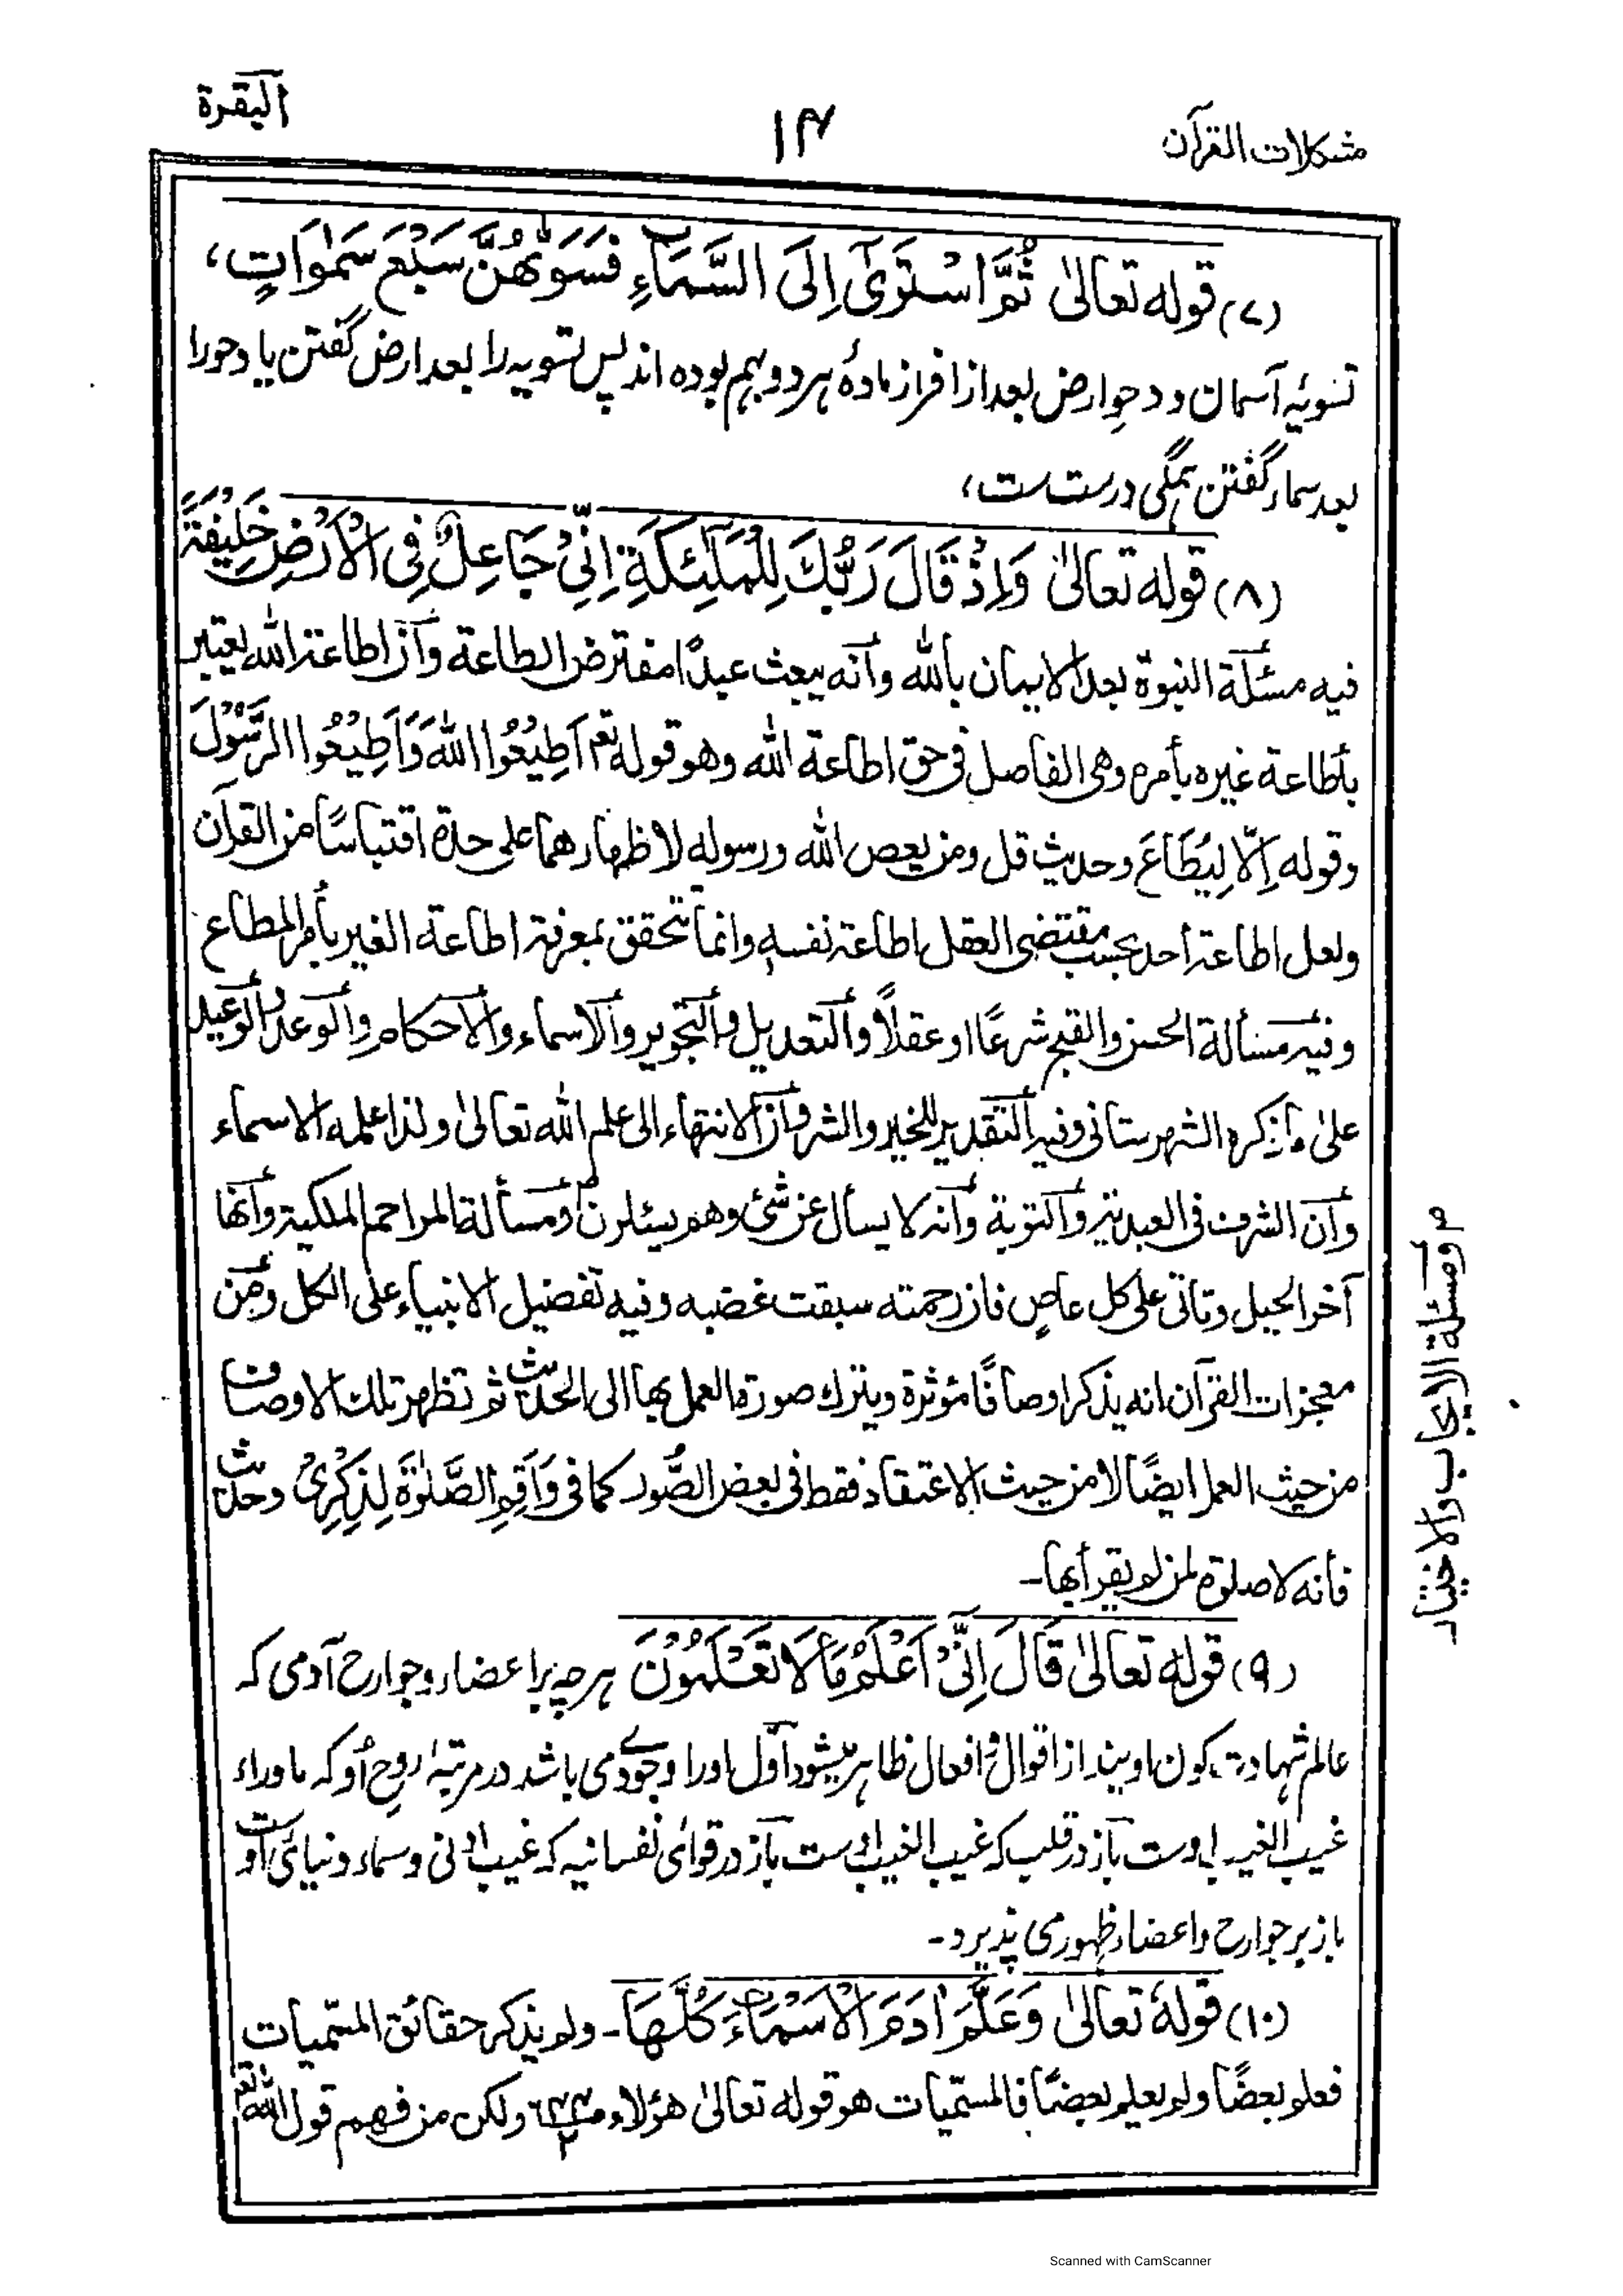 مشكلات القرآن
۱۴
البقرة
(۷) قوله تعالىٰ ثُمَّ اسْتَوٰىٓ اِلَى السَّمَآءِ فَسَوّٰىهُنَّ سَبْعَ سَمٰوَاتٍ،
تسویۂ آسمان و دحوِ ارض بعد از افراز مادۂ ہر دو بہم بودہ اند پس تسویہ را بعد ارض گفتن یا دحو را
بعد سماء گفتن ہمگی درست ست،
(۸) قوله تعالىٰ وَاِذْ قَالَ رَبُّكَ لِلْمَلٰٓئِكَةِ اِنِّيْ جَاعِلٌ فِى الْاَرْضِ خَلِيْفَةً
فيه مسئلة النبوة بعد الايمان بالله وأنه يبعث عبدًا مفترض الطاعة وأن اطاعة الله يعتبر
بأطاعة غيره بأمره وهى الفاصل فى حق اطاعة الله وهو قوله تعم اَطِيْعُوا اللهَ وَاَطِيْعُوا الرَّسُوْلَ
وقوله اِلَّا لِيُطَاعَ وحديث قل ومن يعص الله ورسوله لاظهارهما على حدة اقتباسًا من القرآن
ولعل اطاعة أحد بحسب مقتضى العقل اطاعة نفسه وانما تتحقق بمعرفة اطاعة الغير بأمر المطاع
وفيه مسألة الحسن والقبح شرعًا او عقلاً والتعديل والتجوير والاسماء والاحكام والوعد والوعيد
علىٰ ما ذكره الشهرستانى وفيه التقدير للخير والشر وأن الانتهاء الى علم الله تعالىٰ ولذا علمه الاسماء
وأن الشرف فى العبدية والتوبة وأنه لا يسأل عن شئ وهم يسئلون ومسألة المراحم الملكية وأنها
آخر الحيل وتاتى على كل عاصٍ فان رحمته سبقت غضبه وفيه تفضيل الانبياء على الكل ومن
معجزات القرآن انه يذكر اوصافًا مؤثرة ويترك صورة العمل بها الى الحديث ثم تظهر تلك الاوصاف
من حيث العمل ايضًا لا من حيث الاعتقاد فقط فى بعض الصُّور كما فى وَاَقِمِ الصَّلٰوةَ لِذِكْرِىْ وحديث
فأنه لا صلوة لمن لم يقرأ بها۔
(۹) قوله تعالىٰ قَالَ اِنِّيْٓ اَعْلَمُ مَا لَا تَعْلَمُوْنَ ہرچہ بر اعضاء و جوارح آدمی کہ
عالم شہادت کون اویند از اقوال و افعال ظاہر میشود اول اورا وجودے می باشد در مرتبۂ روح اُو کہ ماوراء
غیب الغیب اوست باز در قلب کہ غیب الغیب اوست باز در قوائ نفسانیہ کہ غیب ادنی و سماء دنیائ اوست
باز بر جوارح و اعضاء ظہور می پذیرد۔
(۱۰) قولهٗ تعالىٰ وَعَلَّمَ اٰدَمَ الْاَسْمَآءَ كُلَّهَا۔ ولم يذكر حقائق المسمّيات
فعلم بعضًا ولم يعلم بعضًا فالمسمّيات هو قوله تعالىٰ هؤلاء ولكن من فهم قول الله تعم
م ومسئلة الايجاب والاختيار
Scanned with CamScanner